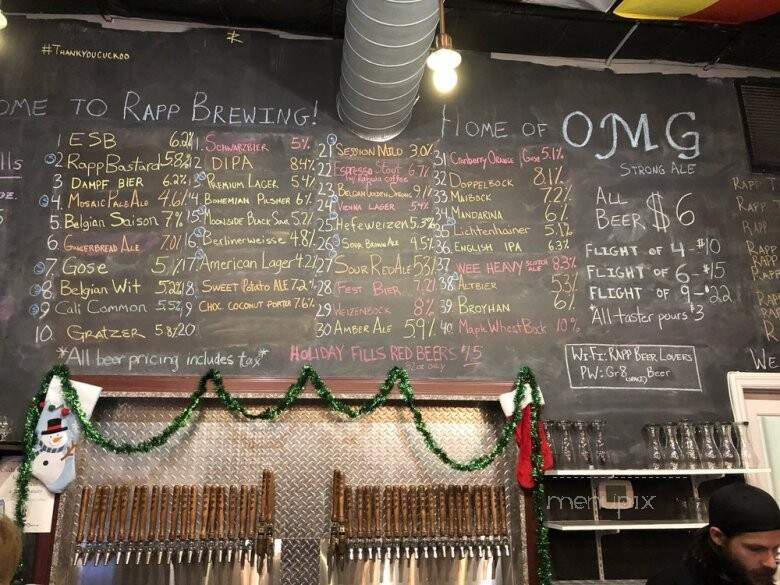 #THANKYOUCUCKOO
OME TO RAPP BREWING!
HOME OF OMG
STRONG ALE
1 ESB 6.2%
2 RAPP BASTARD 5.8%
3 DAMPF BIER 6.2%
4. MOSAIC PALE ALE 4.6%
5. Belgian Saison 7%
6 GINGERBREAD ALE 7.0%
7. GOSE 5%
8. Belgian Wit 5.2%
9 Cali Common 5.5%
10 GRATZER 5.8%
11. SCHWARZBIER 5%
12 DIPA 8.4%
PREMIUM LAGER 5.4%
14 BOHEMIAN PILSNER 6%
15 MOOLSIDE BLACK SOUR 5.2%
16 Berlinerweisse 4.8%
17 American Lager 4.2%
18 SWEET POTATO ALE 7.2%
19 CHOC COCONUT PORTER 7.6%
20
21 SESSION MILD 3.0%
22 Espresso Stout 6.7%
by Kahwa coffee
23 BELGIAN GOLDEN STRONG 9%
24 VIENNA LAGER 5.4%
25 Hefeweizen 5.3%
26 SOUR BROWN ALE 4.5%
27 SOUR RED ALE 5.3%
28 FEST BIER 7.2%
29 WEIZENBOCK 8%
30 AMBER ALE 5.9%
31 Cranberry Orange Gose 5.1%
32 DOPPELBOCK 8.1%
33 MAIBOCK 7.2%
34 MANDARINA 6%
35 Lichtenhainer 5.1%
36 ENGLISH IPA 6.3%
37 WEE HEAVY SCOTCH ALE 8.3%
38 ALTBIER 5.3%
39 BROYHAN 6%
40 Maple Wheat Bock 10%
*All beer pricing includes tax*
HOLIDAY FILLS RED BEERS $15
32oz only
ALL BEER $6
FLIGHT OF 4 - $10
FLIGHT OF 6 - $15
FLIGHT OF 9 - $22
*All taster pours $3
WI-FI: RAPP BEER LOVERS
PW: Gr8 (SPACE) Beer
menupix